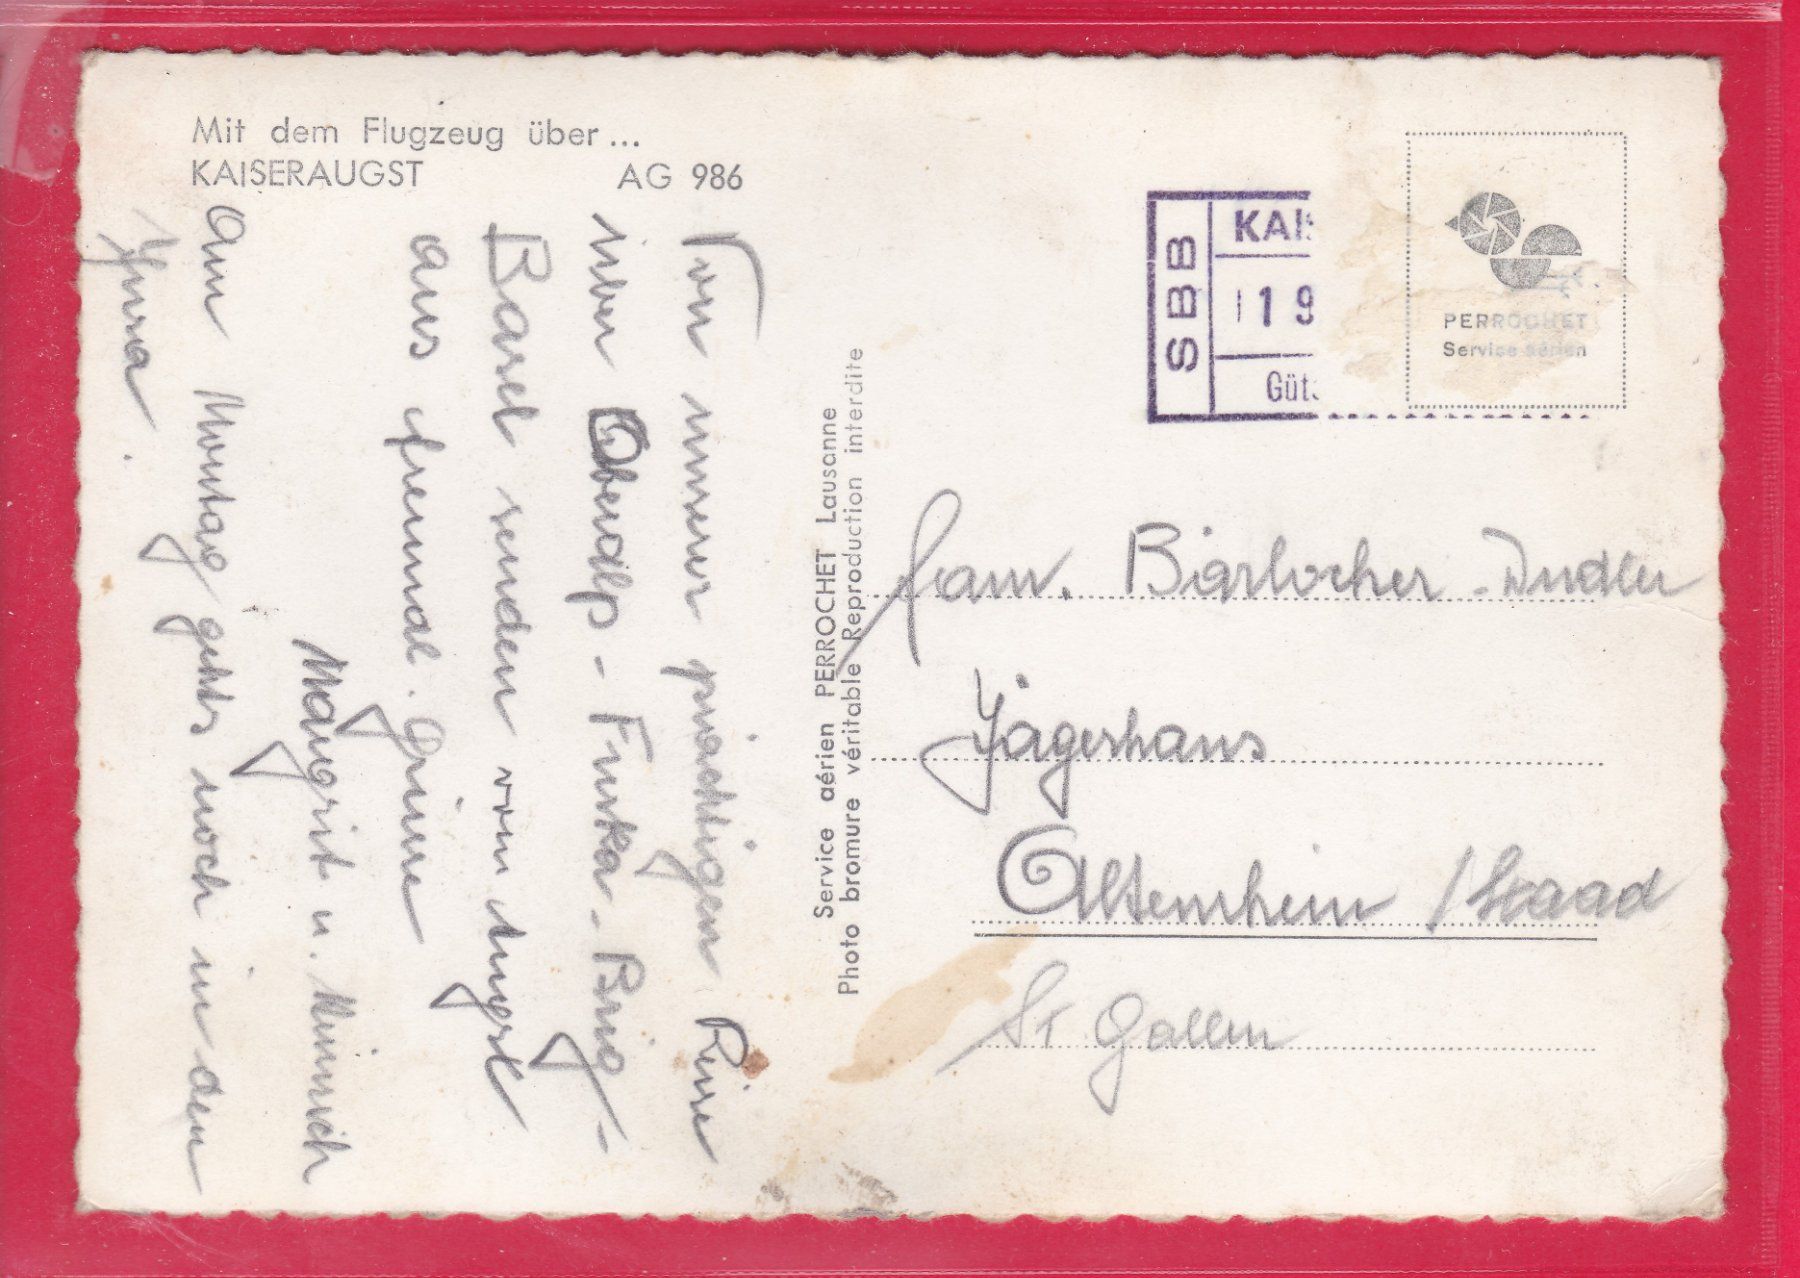 Mit dem Flugzeug über...
KAISERAUGST AG 986
Von unserer prächtigen Reise
über Oberalp - Furka - Brig -
Basel senden von Augst
aus freundl. Grüsse
Margrit u. Heinrich
Am Montag gehts noch in den
Jura.
Service aérien PERROCHET Lausanne
Photo bromure véritable Reproduction interdite
SBB
KAIS
19
Güt
PERROCHET
Service aérien
Fam. Bärlocher -
Jägerhaus
Altenrhein / Staad
St Gallen